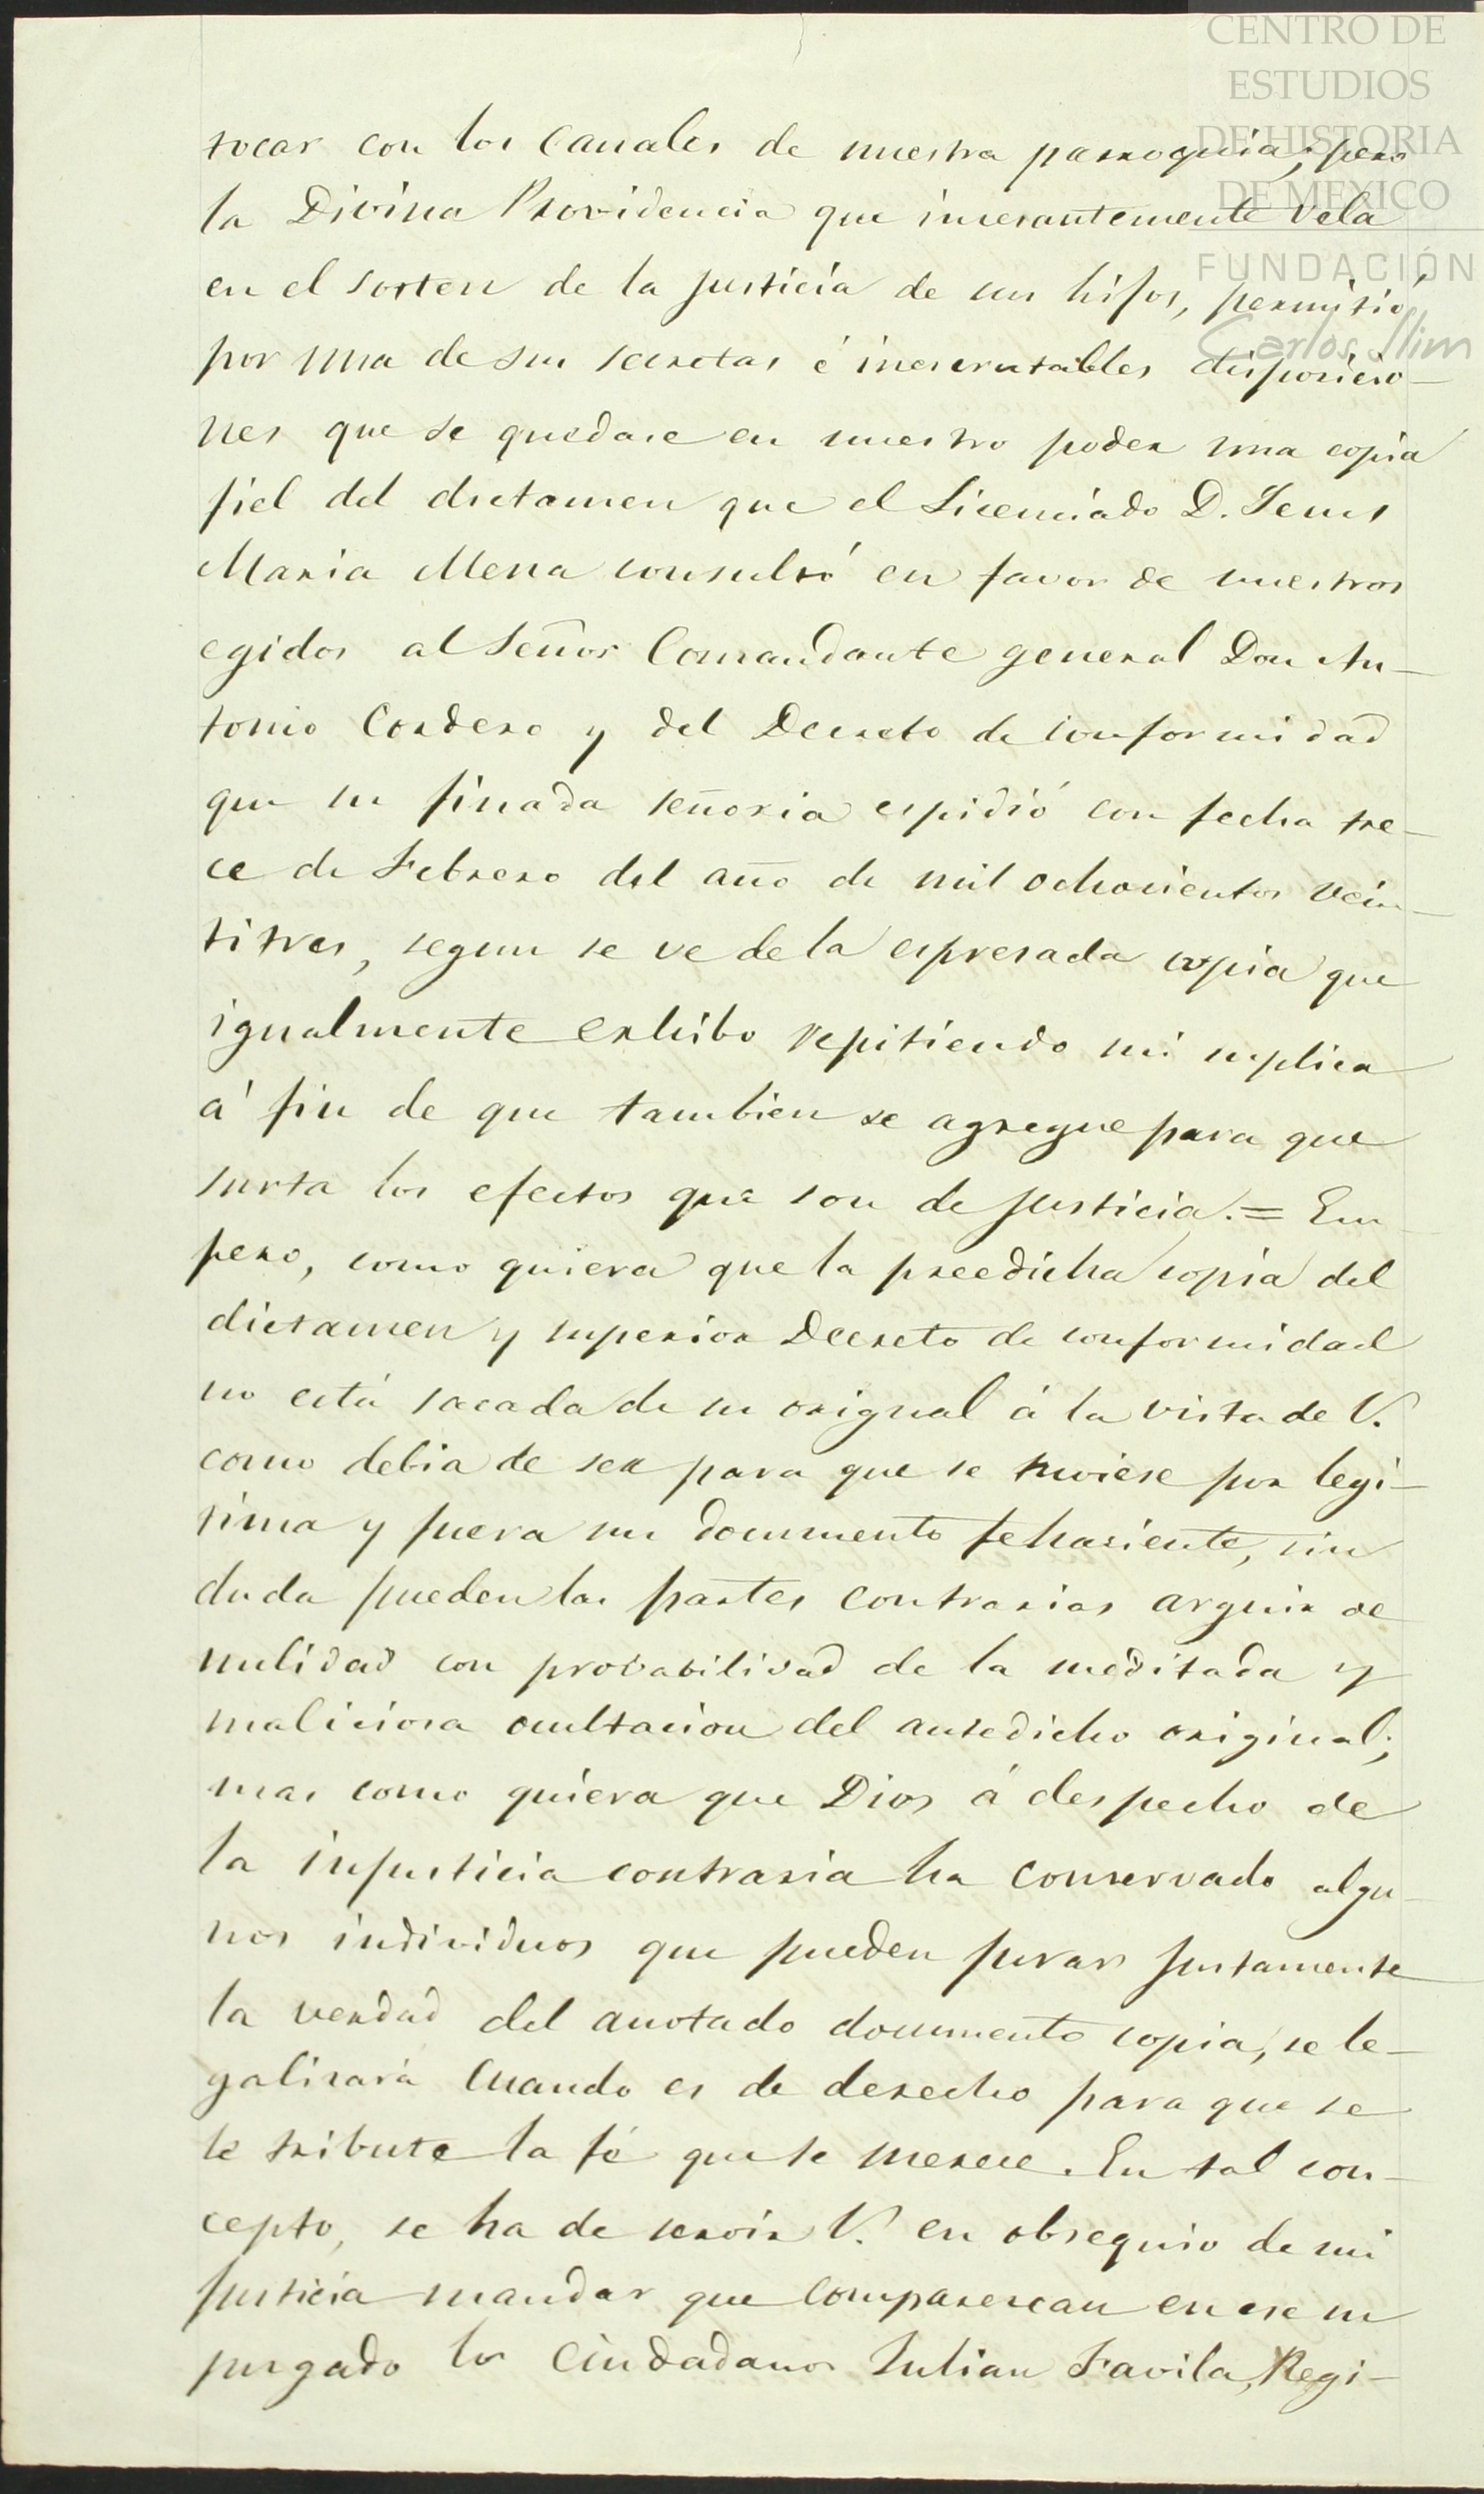 CENTRO DE
ESTUDIOS
DE HISTORIA
DE MEXICO
FUNDACIÓN
Carlos Slim
tocar con los canales de nuestra parroquia; pero
la Divina Providencia que insesantemente vela
en el sosten de la justicia de sus hijos, permitió,
por una de sus secretas é inescrutables disposicio-
nes que se quedase en nuestro poder una copia
fiel del dictamen que el Licenciado D. Jesus
Maria Mena consultó en favor de nuestros
egidos al Señor Comandante general Don An-
tonio Cordero y del Decreto de conformidad
que su finada señoria espidió con fecha tre-
ce de Febrero del año de mil ochocientos vein-
titres, segun se ve de la espresada copia que
igualmente exhibo repitiendo mi suplica
á fin de que tambien se agregue para que
surta los efectos que son de justicia.= Em
pero, como quiera que la preedicha copia del
dictamen y superior Decreto de conformidad
no está sacada de su original á la vista de V.
como debia de ser para que se tuviese por legi-
tima y fuera un documento fehasiente, sin
duda pueden las partes contrarias arguir de
nulidad con provabilidad de la meditada y
maliciosa ocultacion del antedicho original;
mas como quiera que Dios á despecho de
la injusticia contraria ha conservado algu-
nos individuos que pueden jurar justamente
la verdad del anotado documento copia, se le-
galisará cuando es de derecho para que se
le tribute la fé que se merece. En tal con-
cepto, se ha de servir V. en obsequio de mi
justicia mandar que comparescan en ese su
jusgado los Ciudadanos Julian Favila, Regi-